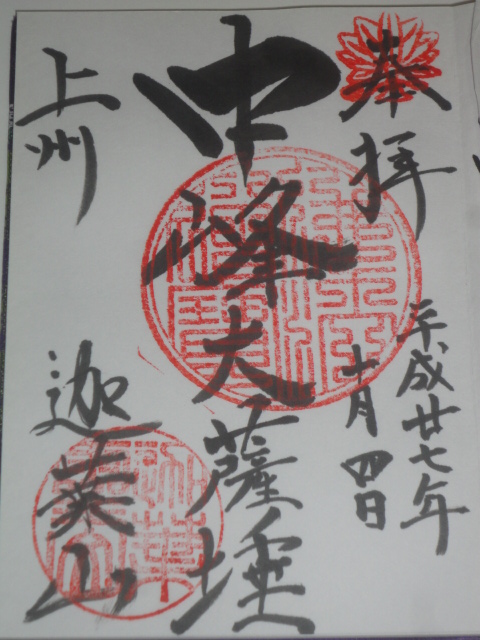 奉拝
平成廿七年
十月四日
中峰大薩埵
上州
迦葉山